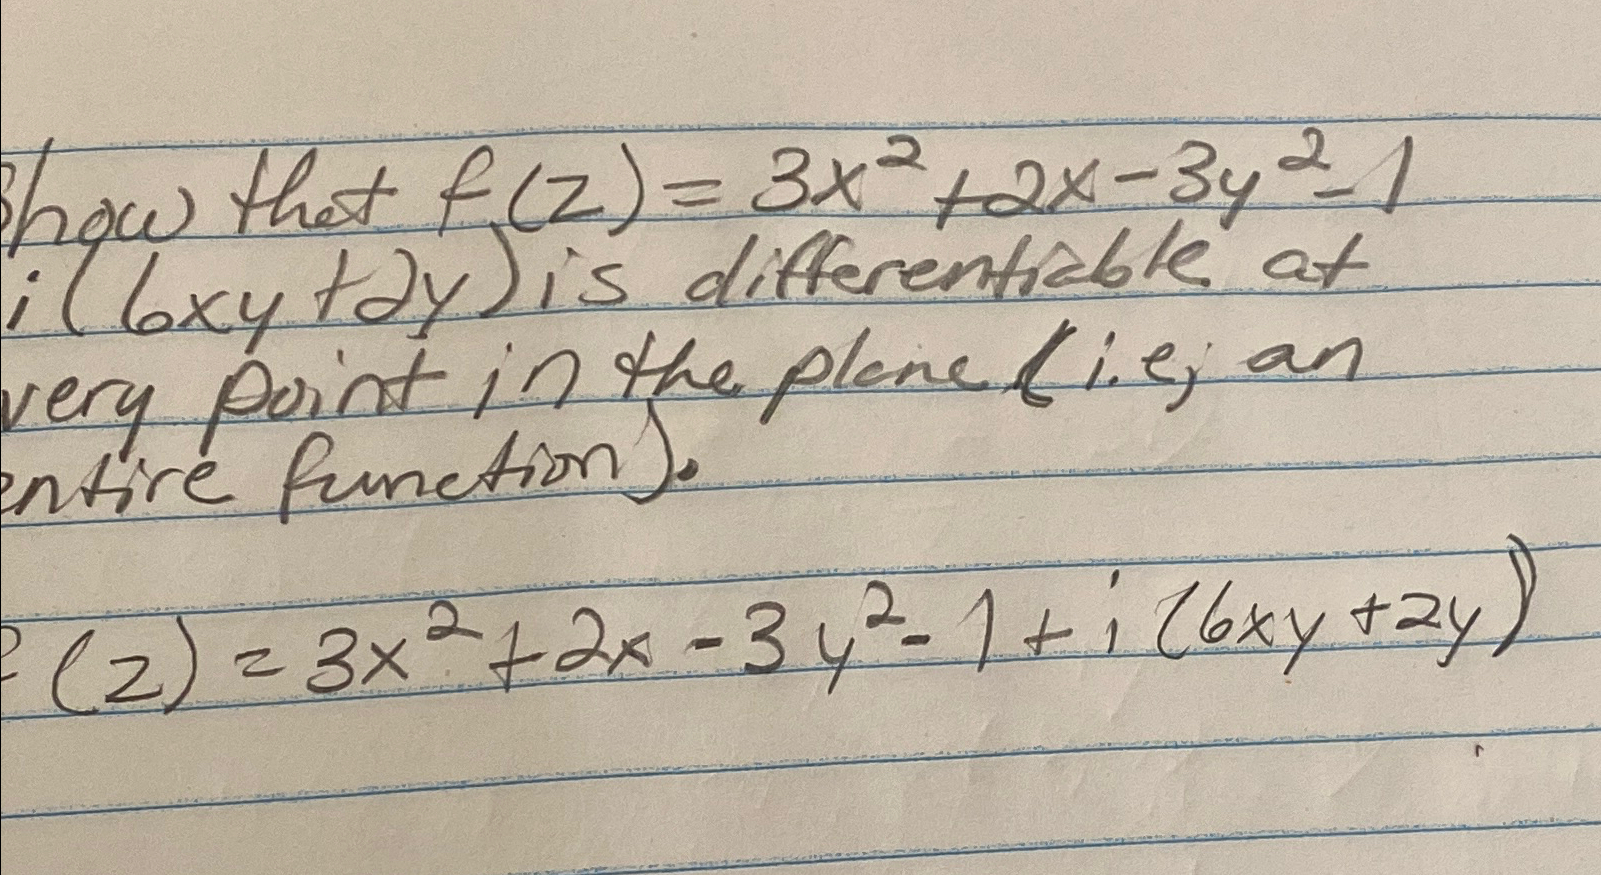 Show that f(z) = 3x² + 2x - 3y² - 1
i(6xy + 2y) is differentiable at
very point in the plane (i.e; an
entire function).
(z) = 3x² + 2x - 3y² - 1 + i(6xy + 2y)